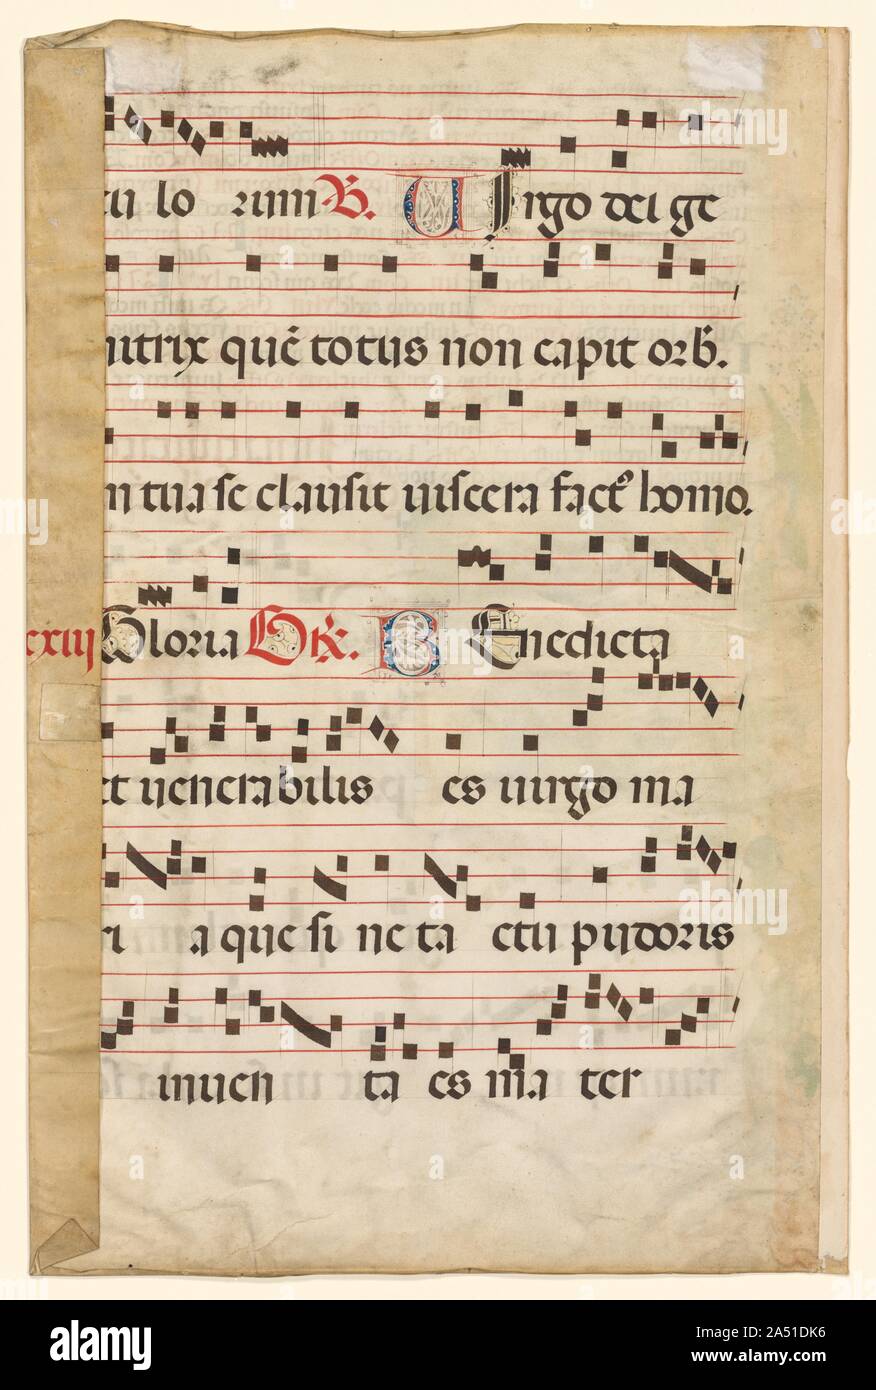 cu lo rum B. Uirgo dei ge
nitrix quē totus non capit orb.
n tua se clausit uiscera fact' homo.
cxiij Gloria Gr. B Enedicta
et uenerabilis es uirgo ma
ri a que si ne ta ctu pudoris
inuen ta es ma ter
alamy
Image ID: 2A51DK6
www.alamy.com